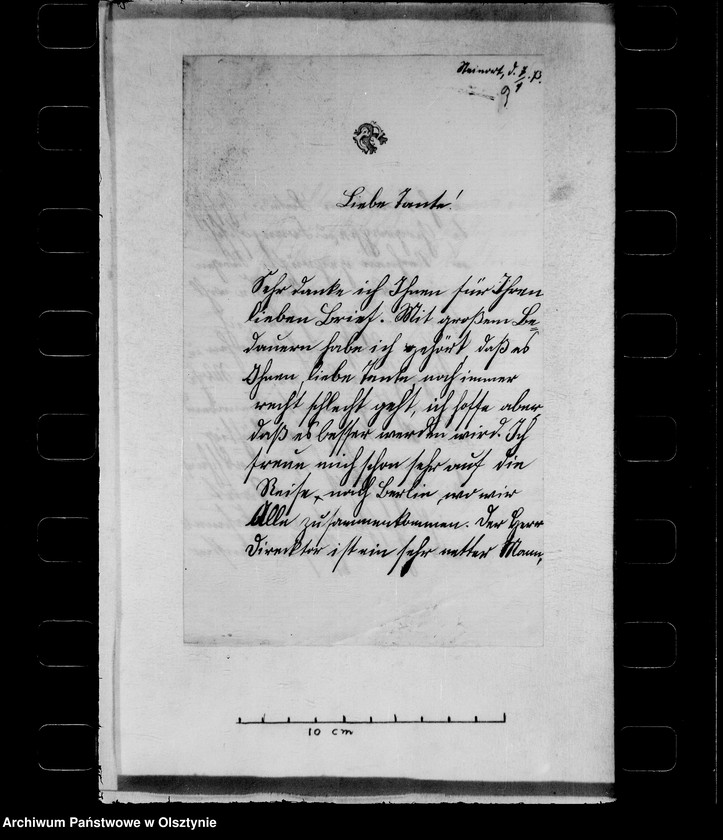 Steinort, d. 7/9
Liebe Tante!
Sehr danke ich Ihnen für Ihren
lieben Brief. Mit großem Be=
dauern habe ich gehört, daß es
Ihnen, liebe Tante noch immer
recht schlecht geht, ich hoffe aber,
daß es besser werden wird. Ich
freue mich schon sehr auf die
Reise, nach Berlin, wo wir
Alle zusammenkommen. Der Herr
Direcktor ist ein sehr netter Mann,
10 cm
Archiwum Państwowe w Olsztynie